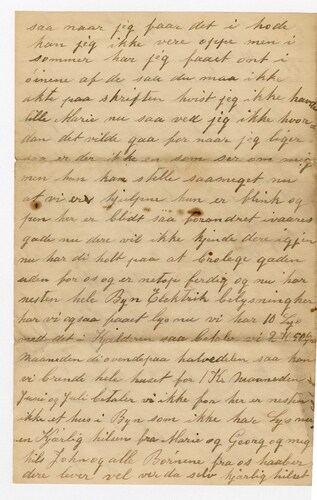 saa naar jeg faar det i hode
kan jeg ikke vere oppe men i
sommer har jeg faaet ont i
öinene af de saa du maa ikke
akte paa skriften hvist jeg ikke havde
lille Marie nu saa ved jeg ikke hvor-
dan det vilde gaa for naar jeg liger
saa er der ikke en som ser om mig
men hun kan stelle saameget nu
at vi er hjulpne hun er flink og
pen her er blidt saa forandret i vaares
gade nu dere vil ikke kjende dere igjen
nu har di holt paa at brolege gaden
uden for os og er netop ferdig og nu har
nesten hele Byn Elektrik belysning her
har vi ogsaa faaet lys nu vi har 10 Lys
med det i Kjeldren saa betale vi 2 Kr
Maaneden di ovendepaa halvedelen saa kan
vi brende hele huset for 1 Kr Maaneden
Juni og Juli betaler vi ikke for her er nesten
ikke et hus i Byn som ikke har Lys nu
en Kjærlig hilsen fra Marie og Georg og mig
tils John og alle Börnene fra os haaber
dere lever vel vær da selv kjærlig hilset